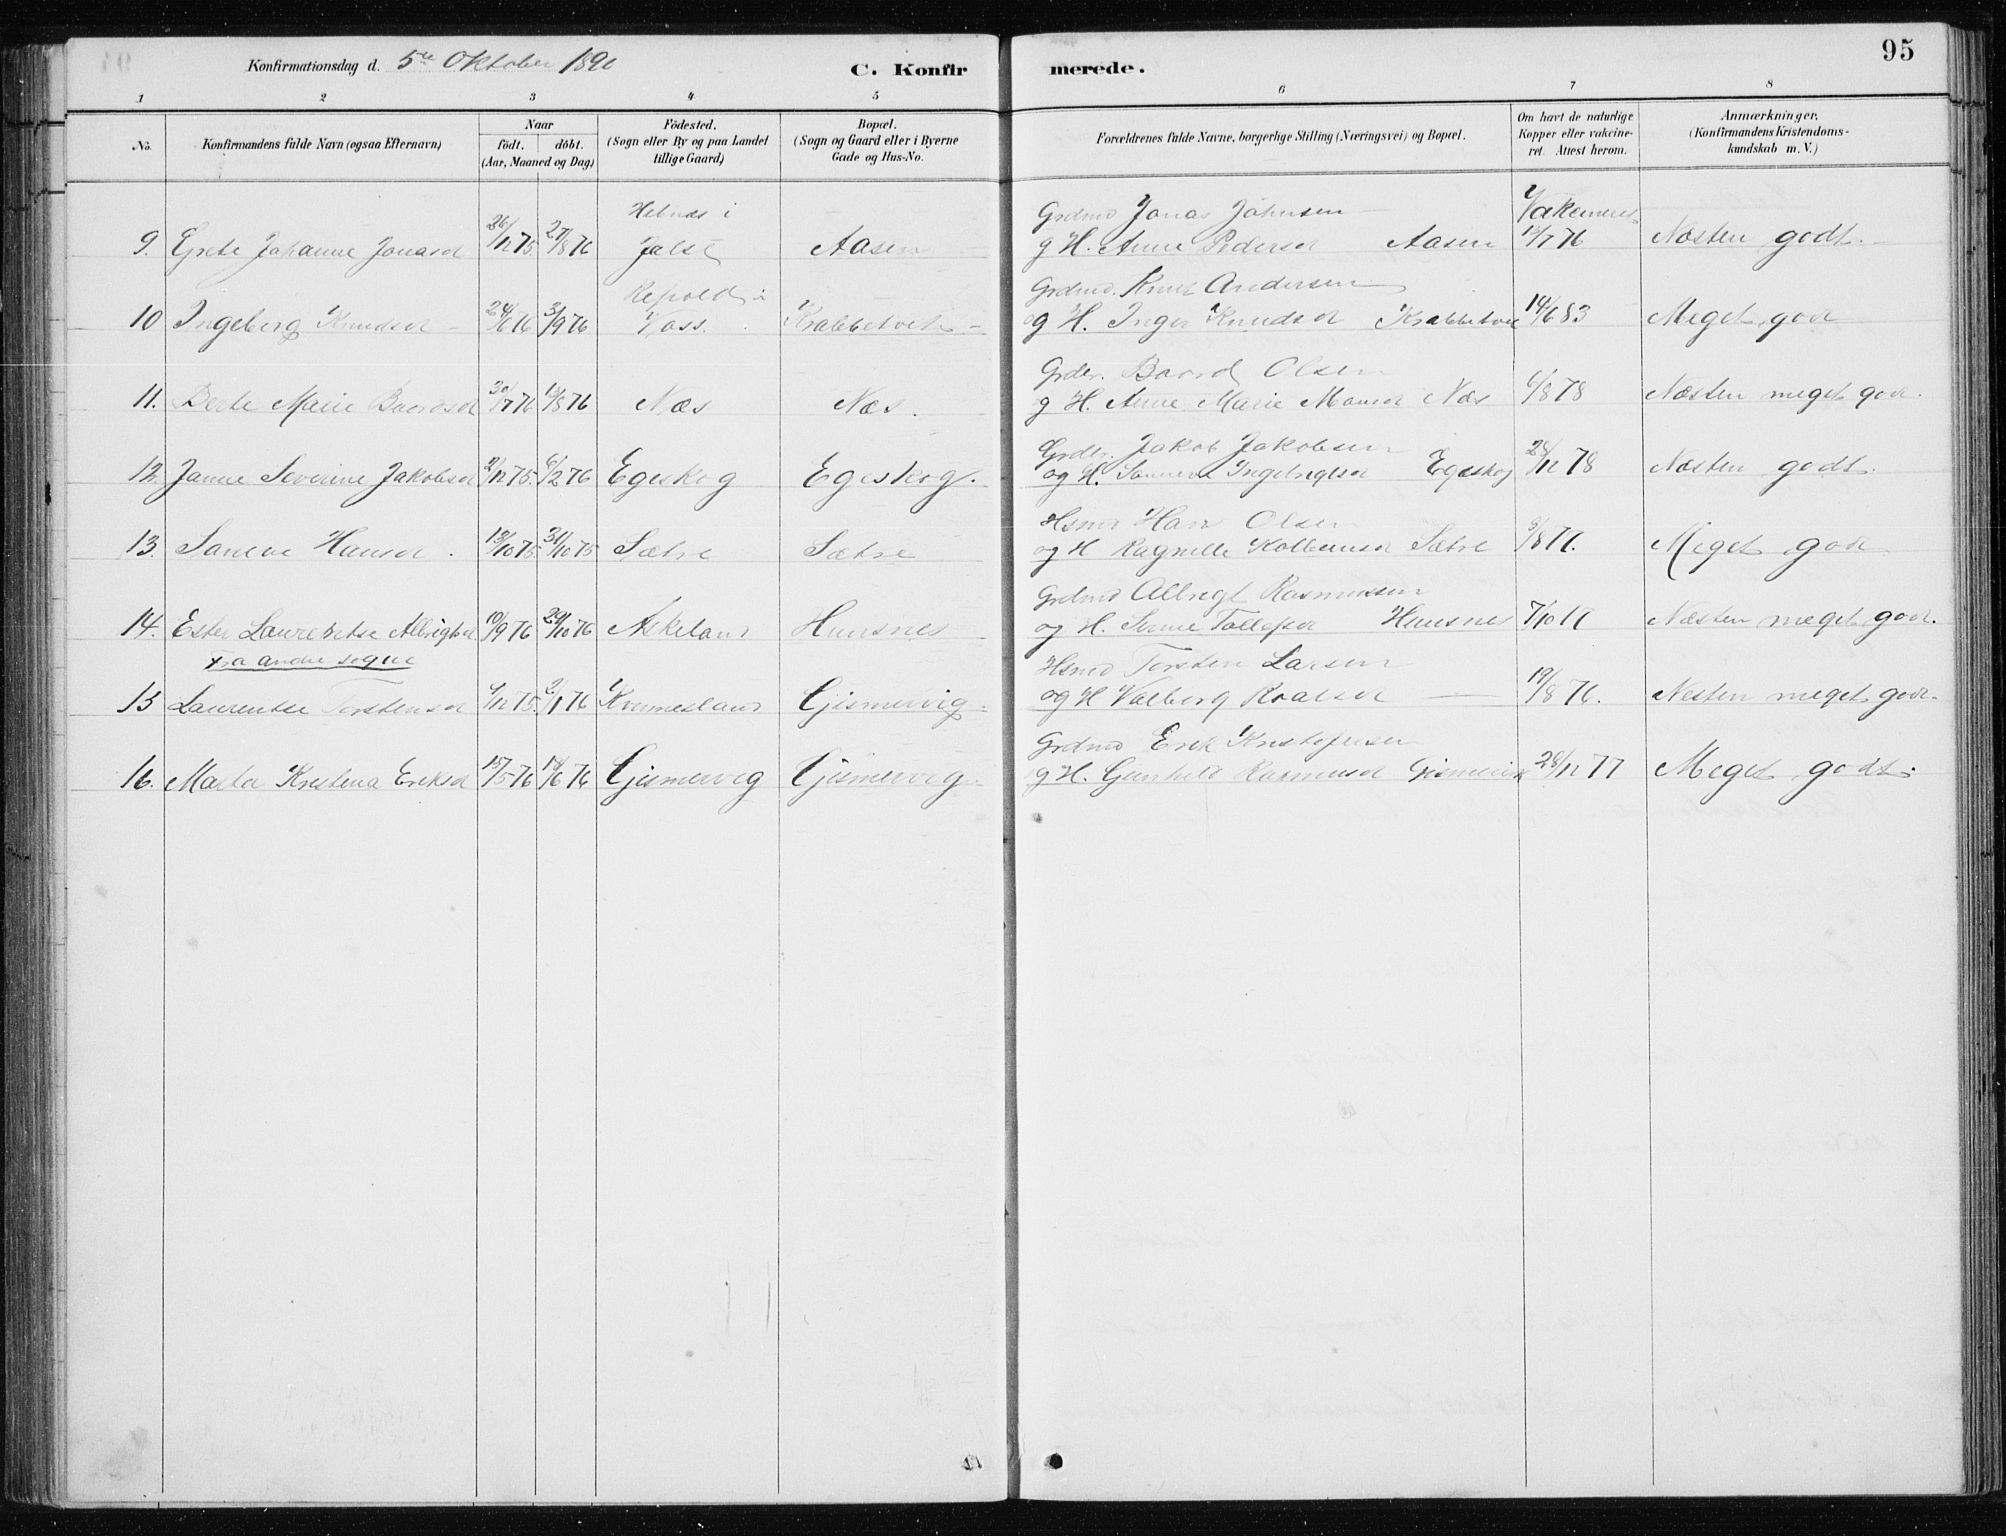 95
Konfirmationsdag d. 5te Oktober 1890
C. Konfirmerede.
1 2 3 4 5 6 7 8
No. Konfirmandens fulde Navn (ogsaa Efternavn) Naar födt. döbt. (Aar, Maaned og Dag) Födested. (Sogn eller By og paa Landet tillige Gaard) Bopæl. (Sogn og Gaard eller i Byerne Gade og Hus-No. Forældrenes fulde Navne, borgerlige Stilling (Næringsvei) og Bopæl. Om havt de naturlige Kopper eller vakcineret. Attest herom. Anmærkninger, (Konfirmandens Kristendomskundskab m. V.)
i Grdmd Jonas Johnsen Vakcineret
9. Grete Johanne Jonasd 26/12 75. 27/8 76 Jølst Aasen og H. Anne Pedersd Aasen 13/7 76 Næsten godt.
i Grdmd. Knut Andersen
10 Ingeborg Knudsd 24/6 76 3/9 76 Voss. Krabbetveit og H. Inger Knudsd Krabbetveit 14/6 83 Meget god
Grdbr. Baard Olsen
11. Berte Marie Baardsd 30/7 76 13/8 76 Næs Næs. og H. Anne Marie Monsd Næs 6/8 78 Næsten meget god.
Grdbr. Jakob Jakobsen
12. Janne Severine Jakobsd 2/12 75. 6/2 76 Egeskog Egeskog. og H. Ingebrigtsd Egeskog 28/12 78 Næsten godt.
Hsmd Hans Olsen
13. Saneve Hansd. 13/10 75. 31/10 75 Sætre Sætre og H Ragnille Kolbensd Sætre Meget god
Grdmd Albregt Rasmussen
14. Ester Laurentse Albrigtsd 10/9 76 29/10 76 Askeland Husnes og H. Tollefsd Husnes 7/10 77 Næsten meget god.
Fra andre sogne
Hsmd Torsten Larsen
15 Laurentse Torstensd 9/12 75. 2/1 76 Kvinnesland Gismervig og H Valborg Roalsd 19/8 76. Nesten meget god.
Grdmd Erik Kristofersen
16. Marta Kristena Eriksd 15/5 76 18/6 76 Gismervig Gismervig og H. Gunhild Rasmusd Gismervik 28/12 77 Meget godt.